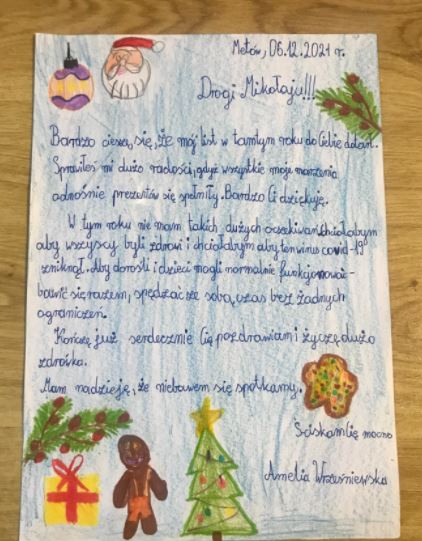 Metów, 06.12.2021 r.
Drogi Mikołaju!!!
Bardzo cieszę się, że mój list w tamtym roku do Ciebie dotarł.
Sprawiłeś mi dużo radości, gdyż wszystkie moje marzenia
odnośnie prezentów się spełniły. Bardzo Ci dziękuję.
W tym roku nie mam takich dużych oczekiwań chciałabym
aby wszyscy byli zdrowi i chciałabym aby ten wirus covid-19
zniknął. Aby dorośli i dzieci mogli normalnie funkcjonować -
bawić się razem, spędzać ze sobą czas bez żadnych
ograniczeń.
Kończę już serdecznie Cię pozdrawiam i życzę dużo
zdrówka.
Mam nadzieję, że niebawem się spotkamy.
Ściskam Cię mocno
Amelia Wrześniewska